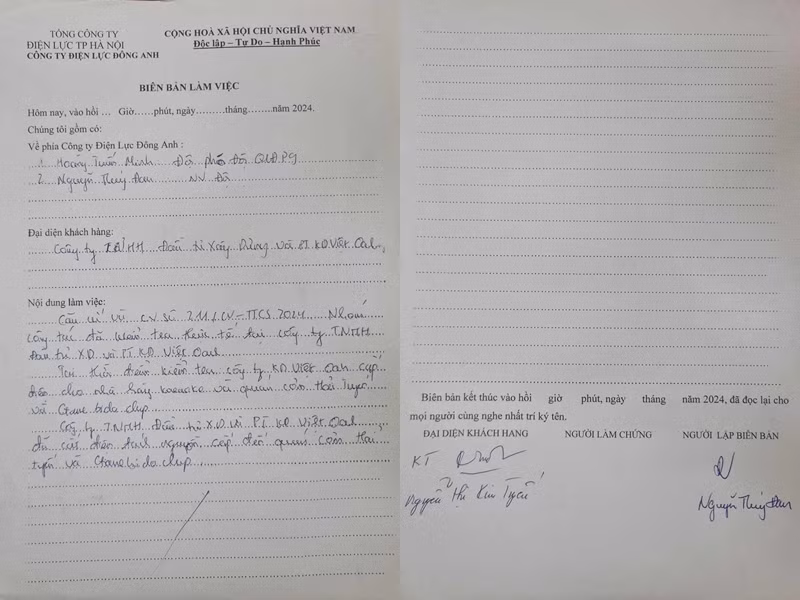 TỔNG CÔNG TY
ĐIỆN LỰC TP HÀ NỘI
CÔNG TY ĐIỆN LỰC ĐÔNG ANH
CỘNG HOÀ XÃ HỘI CHỦ NGHĨA VIỆT NAM
Độc lập – Tự Do – Hạnh Phúc
BIÊN BẢN LÀM VIỆC
Hôm nay, vào hồi ... Giờ......phút, ngày.........tháng........năm 2024.
Chúng tôi gồm có:
Về phía Công ty Điện Lực Đông Anh :
1. Hoàng Tuấn Minh Đội phó Đội QLĐPG
2. Nguyễn Thuý Đan NV Đội
Đại diện khách hàng:
Công ty TNHH Đầu tư Xây Dựng và PT KD Việt Oal
Nội dung làm việc:
Căn cứ CV số 211/CV-TTCS 2024 Nhóm
công tác đã kiểm tra thực tế tại công ty TNHH
Đầu tư XD và PT KD Việt Oal
Tại thời điểm kiểm tra công ty KD Việt Oal cấp
điện cho nhà hàng karaoke và quán cơm Hải Tuyến
và bida clup
Công ty TNHH Đầu tư XD và PT KD Việt Oal
đã cắt điện nguồn cấp đến quán cơm Hải
Tuyến và bida clup
Biên bản kết thúc vào hồi giờ phút, ngày tháng năm 2024, đã đọc lại cho
mọi người cùng nghe nhất trí ký tên.
ĐẠI DIỆN KHÁCH HANG NGƯỜI LÀM CHỨNG NGƯỜI LẬP BIÊN BẢN
KT
Nguyễn Thị Kim Tuyến
Nguyễn Thuý Đan